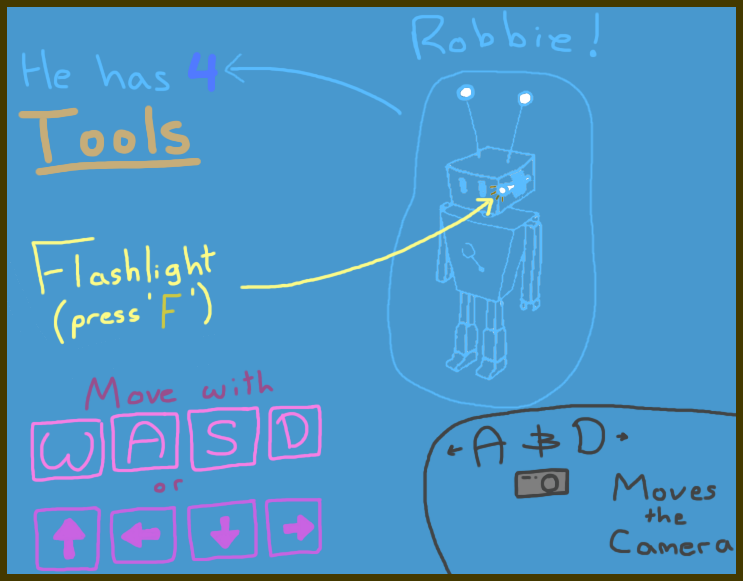 Robbie!
He has 4
Tools
Flashlight
(press 'F')
Move with
W A S D
or
↑ ← ↓ →
← A & D →
Moves
the
Camera